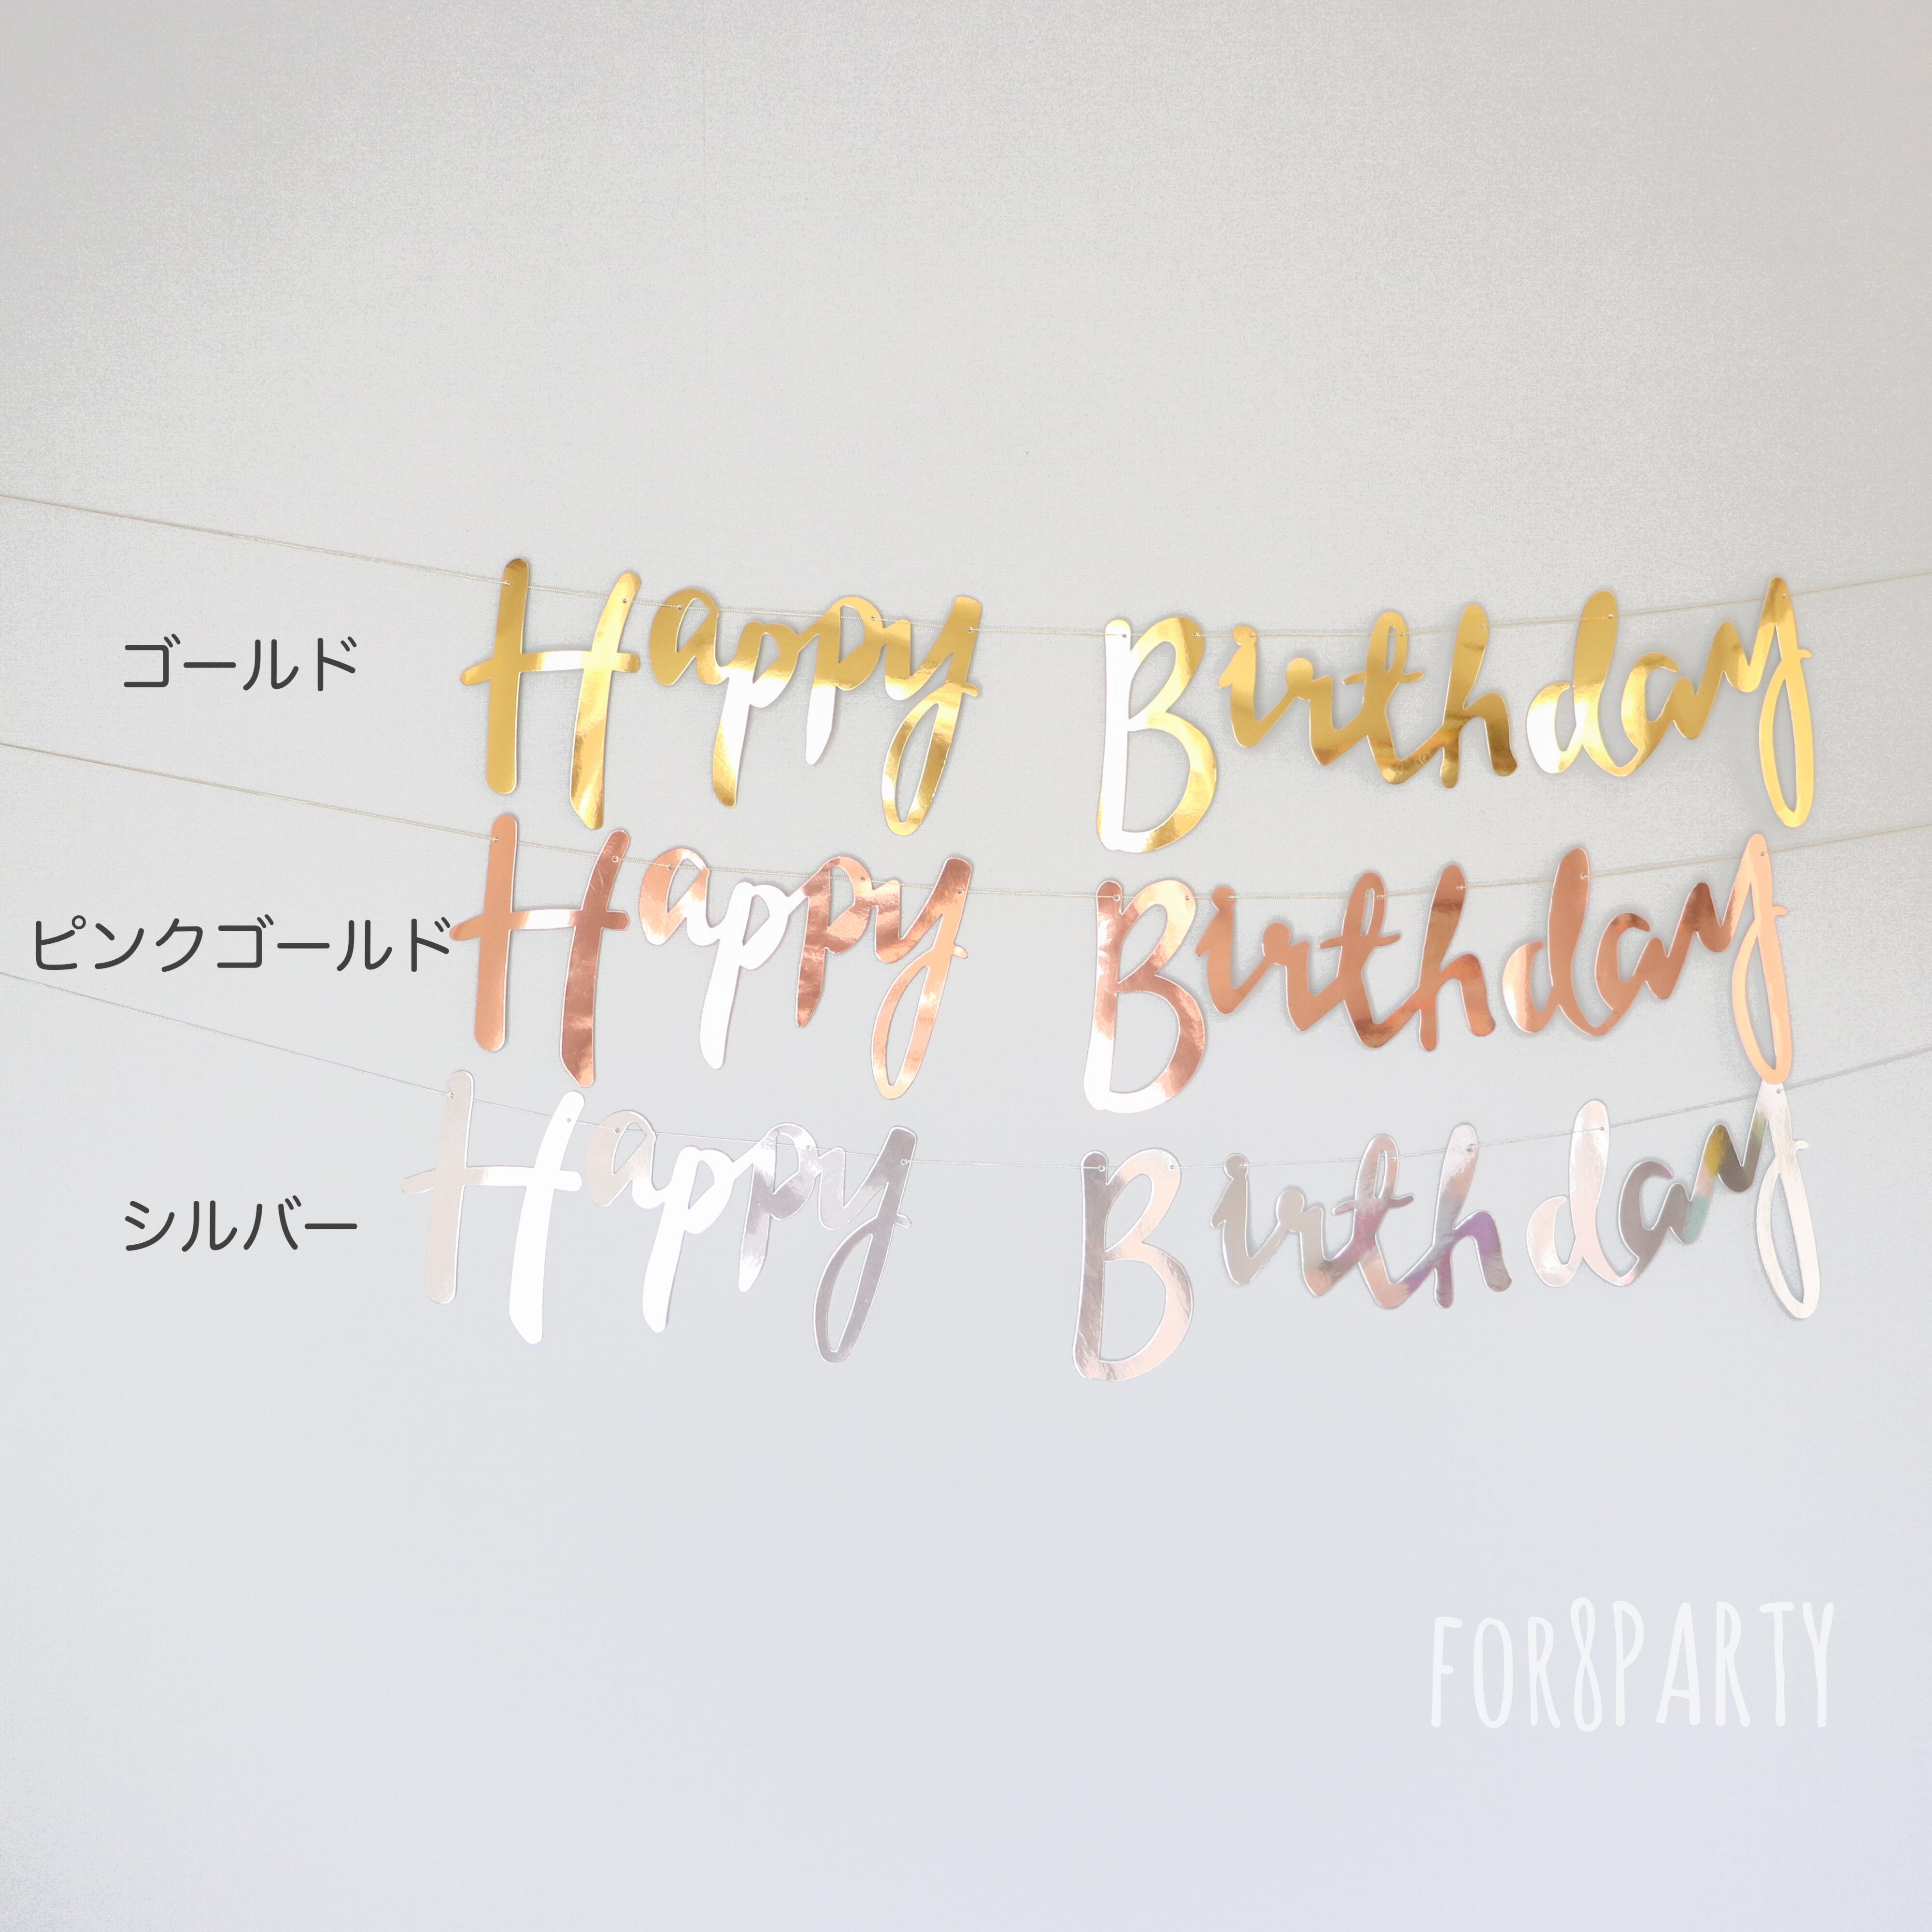 ゴールド
Happy Birthday
ピンクゴールド
Happy Birthday
シルバー
Happy Birthday
FOR8PARTY